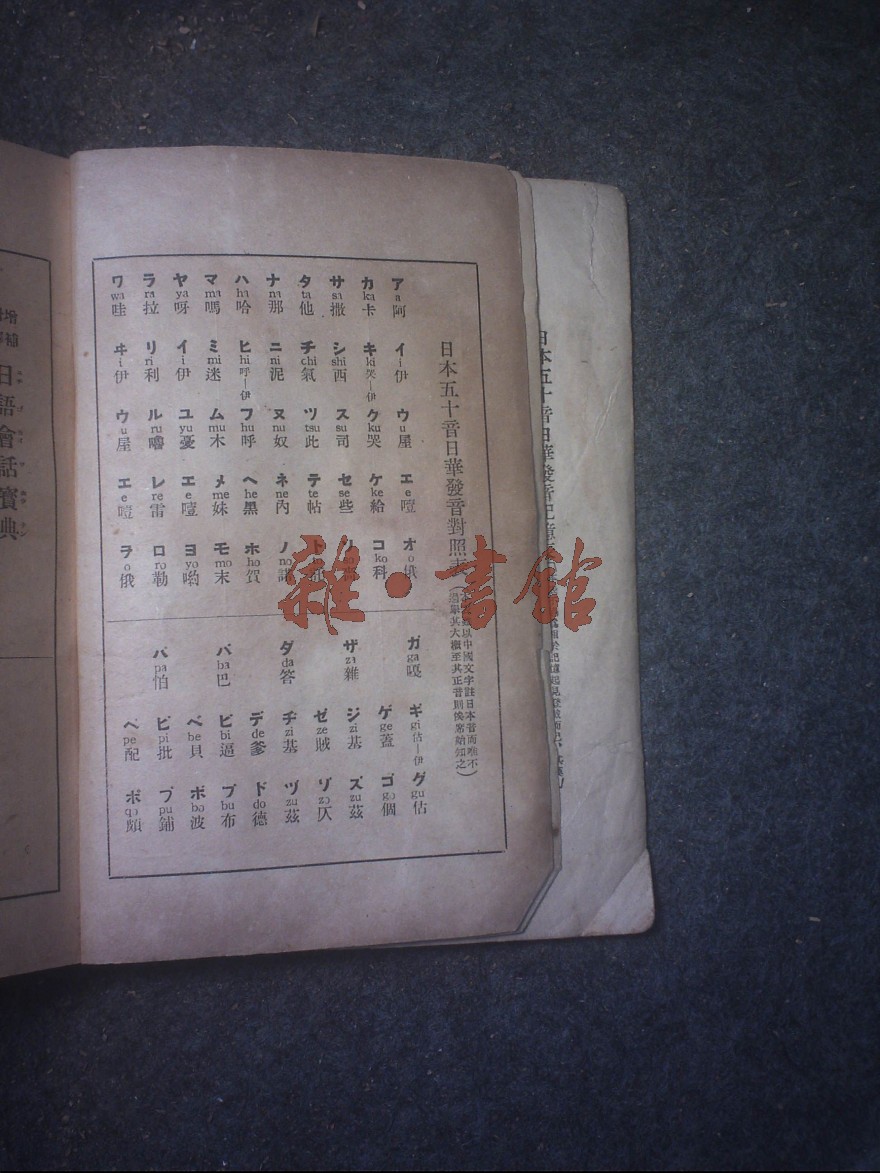 日本五十音日華發音對照
以中國文字註日本音而唯不
過舉其大概至其正音則俟席始知之)
ア a 阿 イ i 伊 ウ u 屋 エ e 噎 オ o 俄
カ ka 卡 キ ki 哭—伊 ク ku 哭 ケ ke 給 コ ko 科
サ sa 撒 シ shi 西 ス su 司 セ se 些
タ ta 他 チ chi 氣 ツ tsu 此 テ te 帖 ト
ナ na 那 ニ ni 泥 ヌ nu 奴 ネ ne 內 ノ no 諾
ハ ha 哈 ヒ hi 呼—伊 フ hu 呼 ヘ he 黑 ホ ho 賀
マ ma 嗎 ミ mi 迷 ム mu 木 メ me 妹 モ mo 末
ヤ ya 呀 イ i 伊 ユ yu 憂 エ e 噎 ヨ yo 喲
ラ ra 拉 リ ri 利 ル ru 嚕 レ re 雷 ロ ro 勒
ワ wa 哇 ヰ i 伊 ウ u 屋 エ e 噎 ヲ o 俄
ガ ga 嘎 ギ gi 估—伊 グ gu 估
ゲ ge 蓋 ゴ go 個
ザ za 雜 ジ zi 基 ズ zu 茲
ゼ ze 賊 ゾ zo 仄
ダ da 答 ヂ zi 基 ヅ zu 茲
デ de 爹 ド do 德
バ ba 巴 ビ bi 逼 ブ bu 布
ベ be 貝 ボ bo 波
パ pa 怕 ピ pi 批 プ pu 鋪
ペ pe 配 ポ po 頗
日本五十音日華發音記憶
增補
日語會話寶典
雜·書館